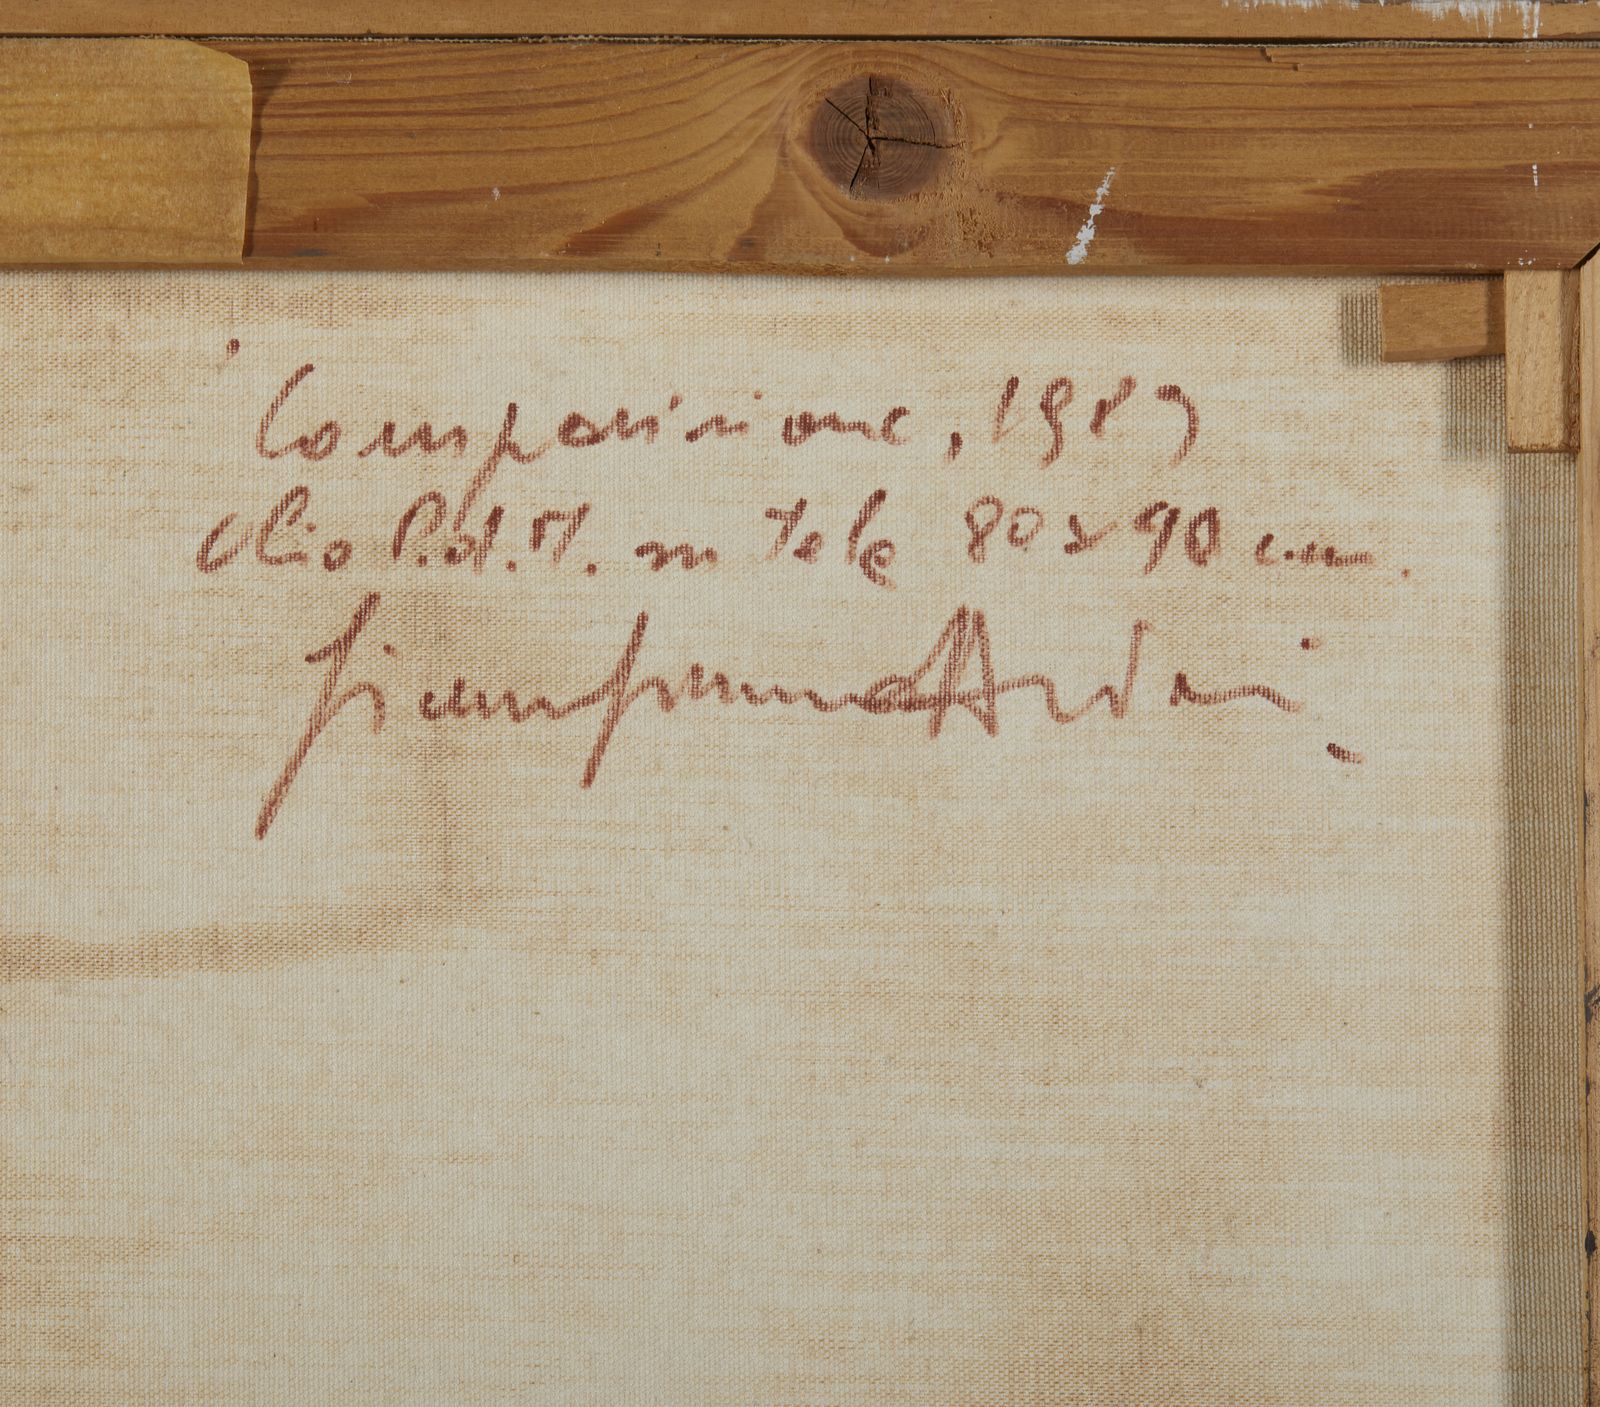 Composizione, 1987
olio P.d.M. su tela 80x90 cm.
Gianfranco Ardoi